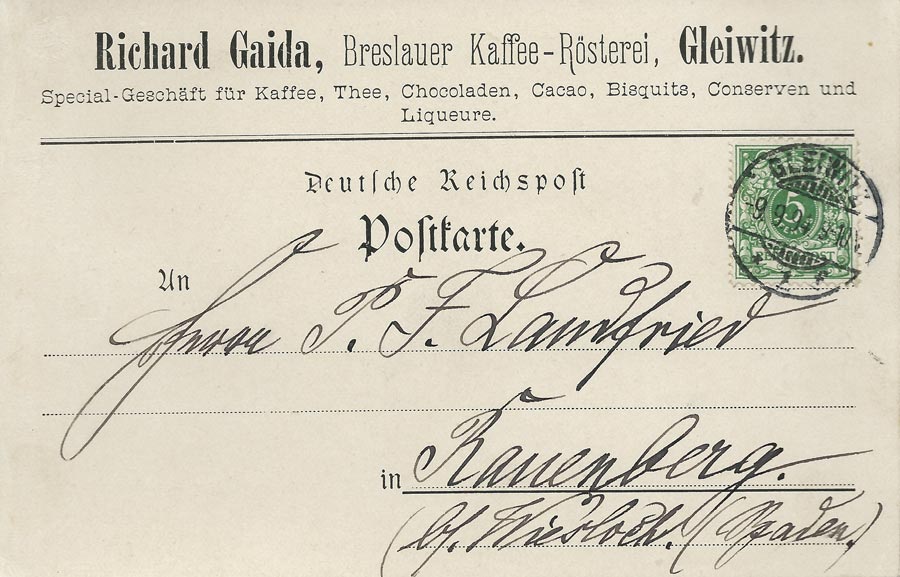 Richard Gaida, Breslauer Kaffee-Rösterei, Gleiwitz.
Special-Geschäft für Kaffee, Thee, Chocoladen, Cacao, Bisquits, Conserven und
Liqueure.
Deutsche Reichspost
Postkarte.
GLEIWITZ
5
An
Herrn P. F. Landfried
in Rauenberg.
(bf. Wiesloch. (Baden.)